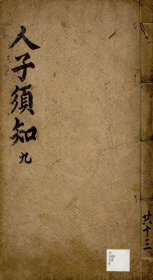 人子須知
九
共十三